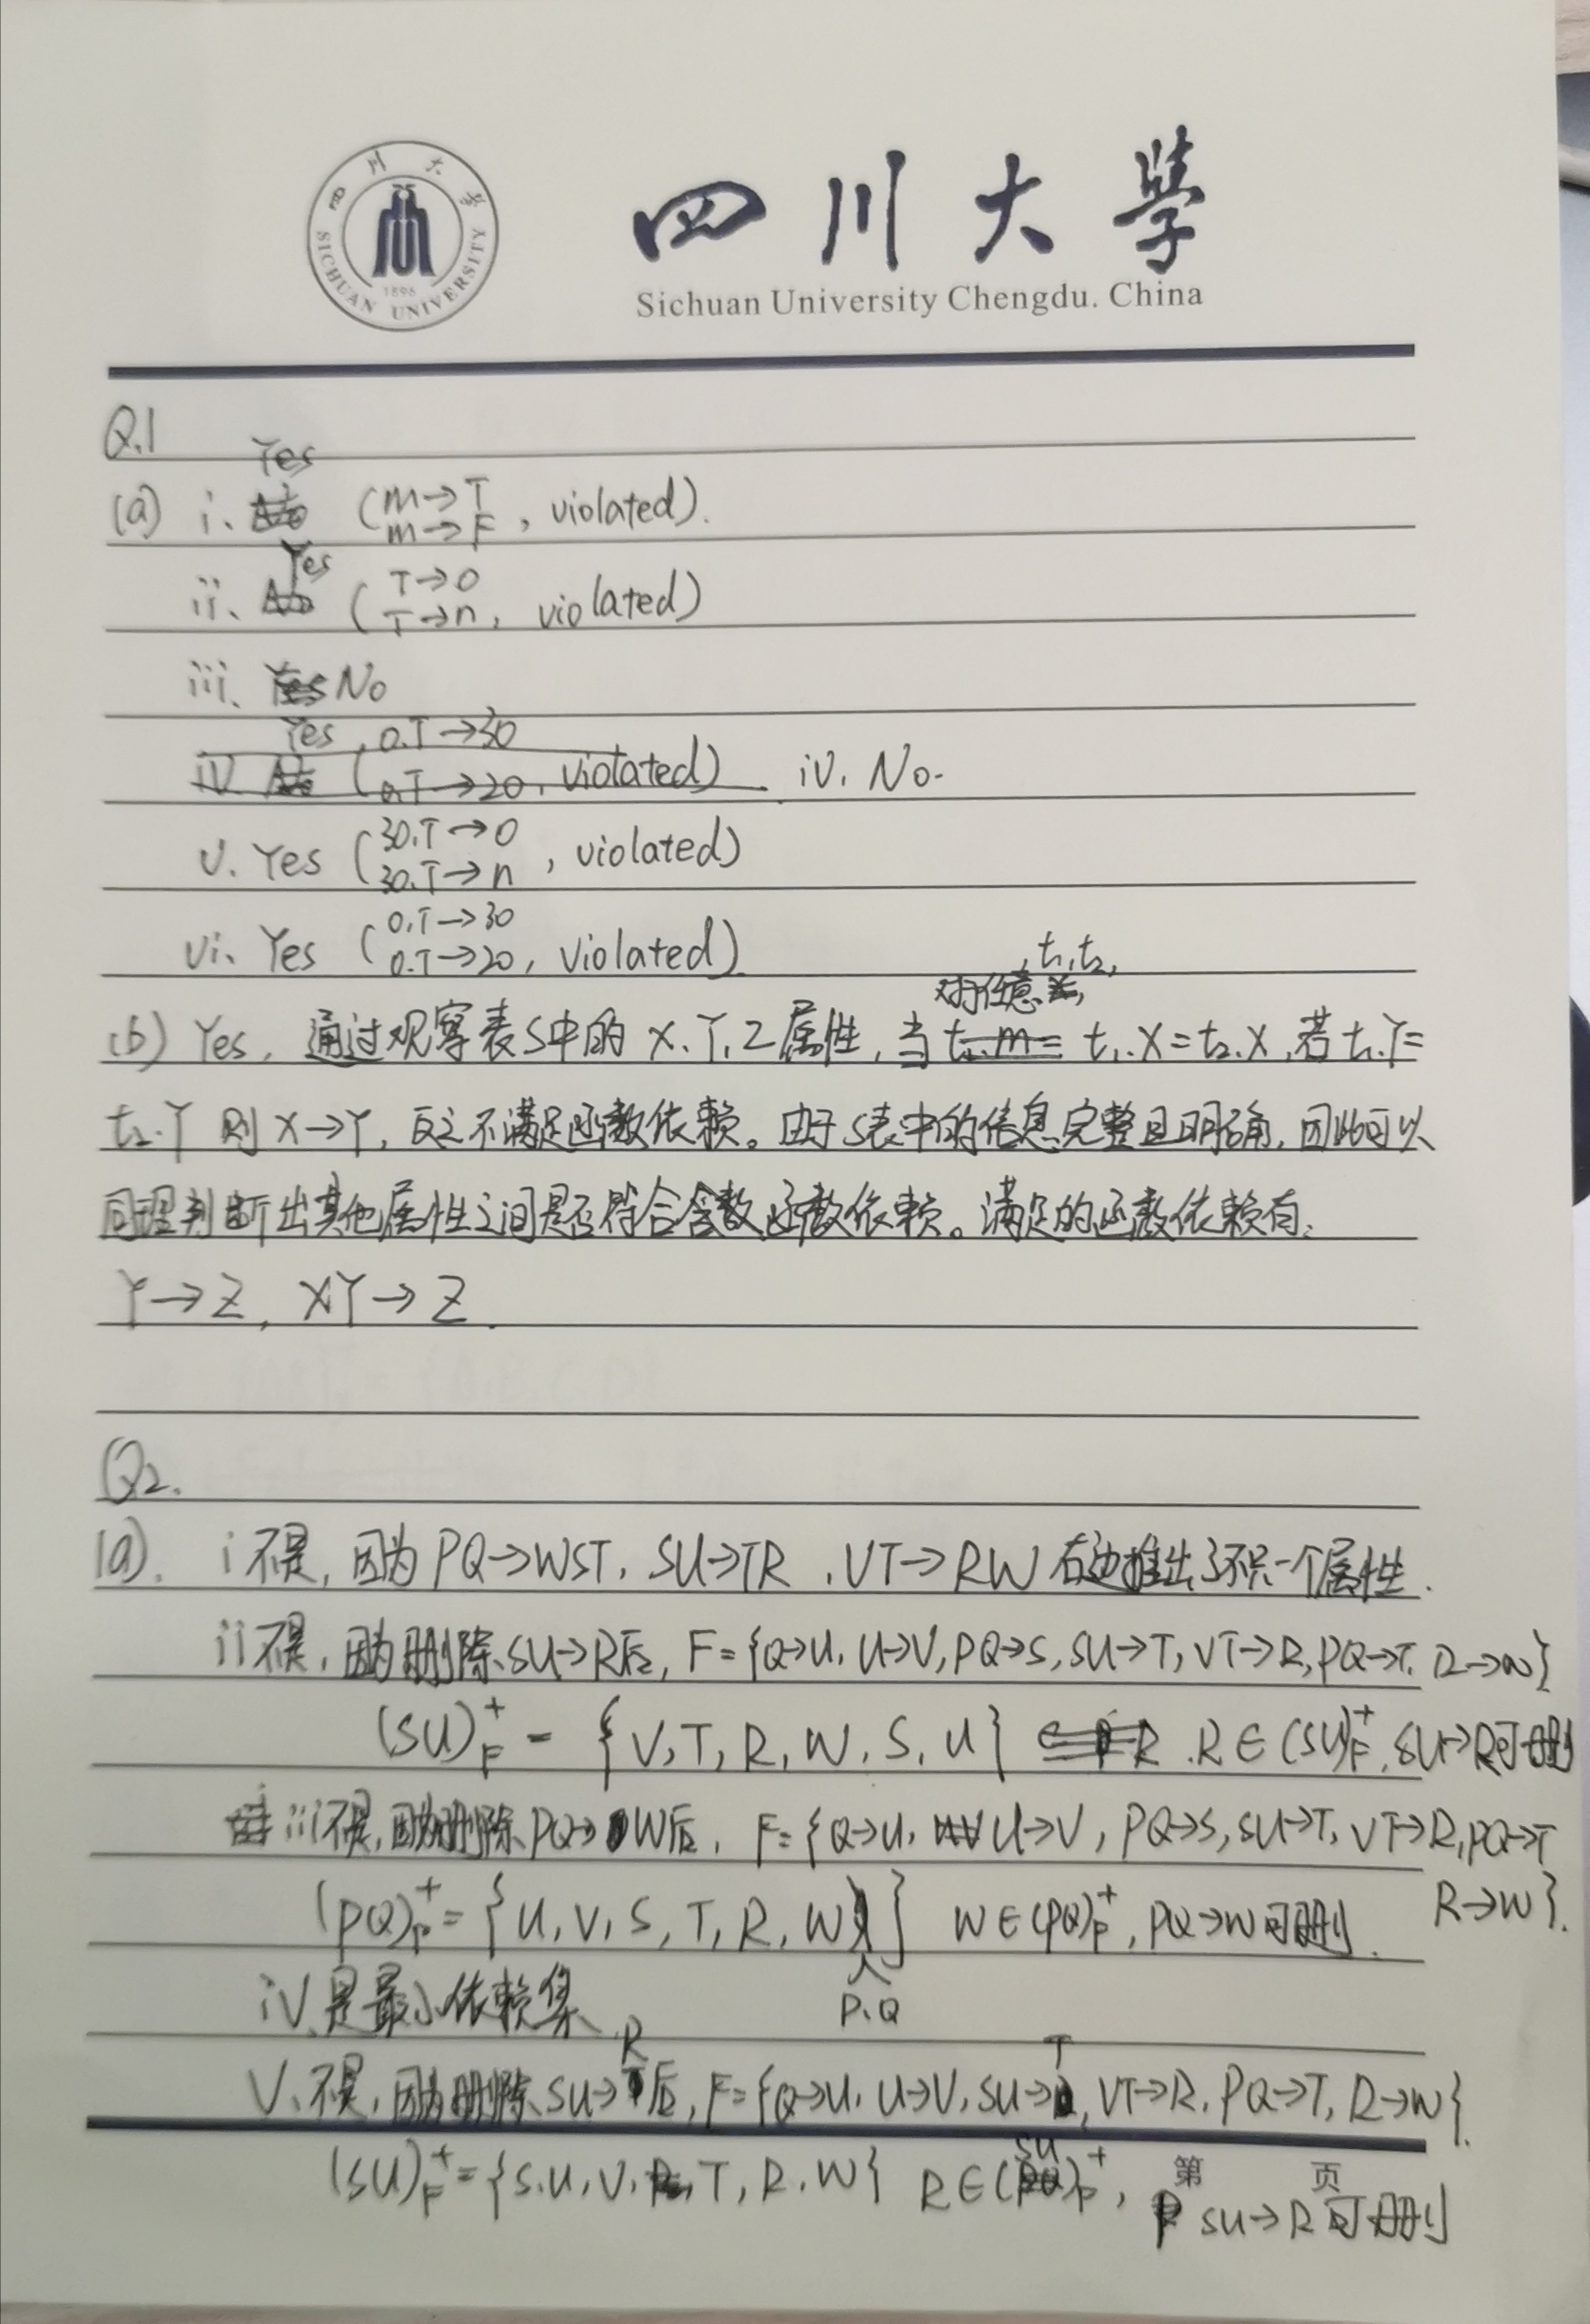 四川大学
SICHUAN UNIVERSITY
1896
四川大學
Sichuan University Chengdu. China
Q.1
(a) i、Yes (m→T m→F, violated).
ii、Yes (T→0 T→n, violated)
iii、No
iv Yes (0.T→30 0.T→20, violated) iv. No.
v. Yes (30.T→0 30.T→n, violated)
vi、Yes (0.T→30 0.T→20, violated)
(b) Yes, 通过观察表S中的X、Y、Z属性, 当对于任意t₁,t₂, t₁.X=t₂.X,若t₁.Y=
t₂.Y 则X→Y, 反之不满足函数依赖。由于S表中的信息完整且明确,因此可以
同理判断出其他属性之间是否符合函数依赖。满足的函数依赖有:
Y→Z, XY→Z.
Q2.
(a). i 不是, 因为PQ→WST, SU→TR, VT→RW 右边推出了不只一个属性.
ii不是, 因为删除SU→R后, F={Q→U, U→V, PQ→S, SU→T, VT→R, PQ→T, R→W}
(SU)⁺F = {V,T,R,W,S,U} R∈(SU)⁺F, SU→R可删
iii不是, 因为删除PQ→W后, F={Q→U, U→V, PQ→S, SU→T, VT→R, PQ→T
R→W}.
(PQ)⁺F={U,V,S,T,R,W,P,Q} W∈(PQ)⁺F, PQ→W可删.
iV、是最小依赖集
V、不是, 因为删除SU→R后, F={Q→U, U→V, SU→T, VT→R, PQ→T, R→W}.
(SU)⁺F={S,U,V,T,R,W} R∈(SU)⁺F, SU→R可删
第 页